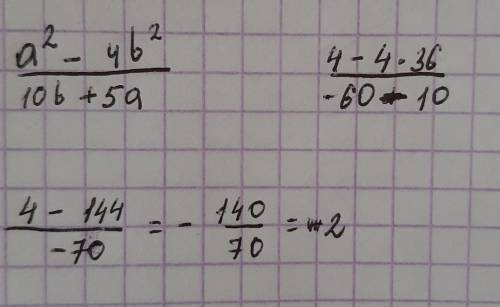 a² - 4b² / 10b + 5a
4 - 4·36 / -60 - 10
4 - 144 / -70 = - 140 / 70 = -2